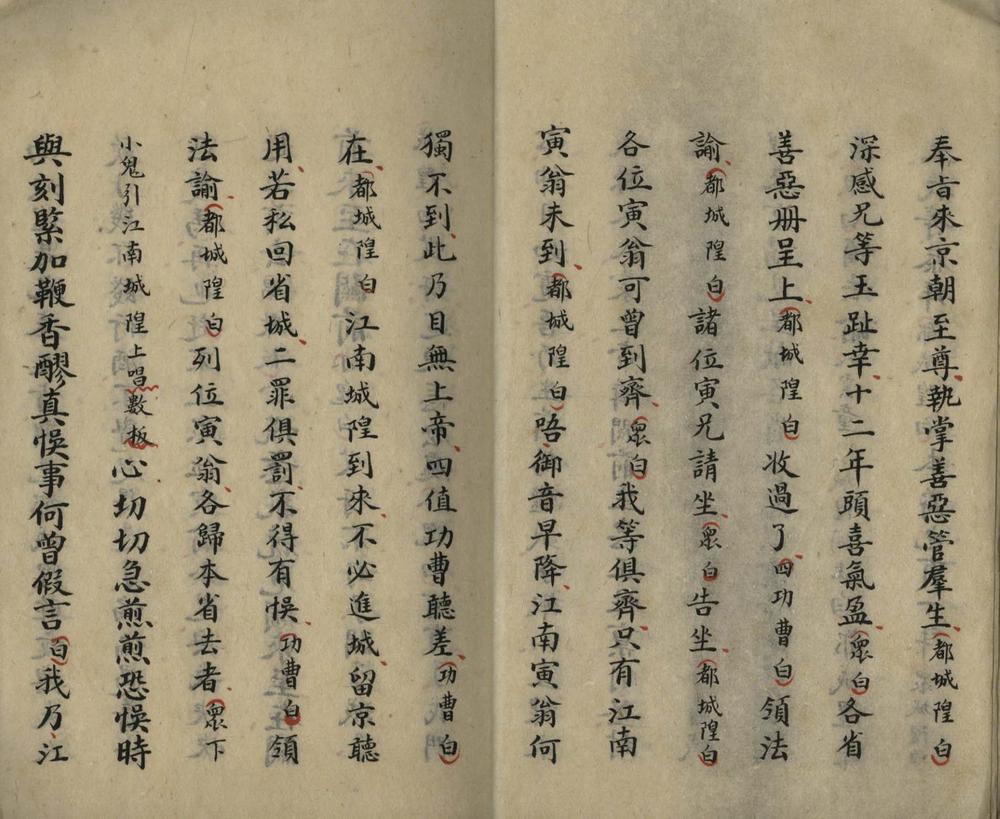 奉旨來京朝至尊執掌善惡管羣生都城隍白
深感兄等玉趾幸十二年頭喜氣盈衆白各省
善惡册呈上都城隍白收過了四功曹白領法
諭都城隍白諸位寅兄請坐衆白告坐都城隍白
各位寅翁可曾到齊衆白我等俱齊只有江南
寅翁未到都城隍白唔御音早降江南寅翁何
獨不到此乃目無上帝四值功曹聽差功曹白
在都城隍白江南城隍到來不必進城留京聽
用若私回省城二罪俱罰不得有悞功曹白領
法諭都城隍白列位寅翁各歸本省去者衆下
小鬼引江南城隍上唱數板心切切急煎煎恐悞時
與刻緊加鞭香醪真悞事何曾假言白我乃江